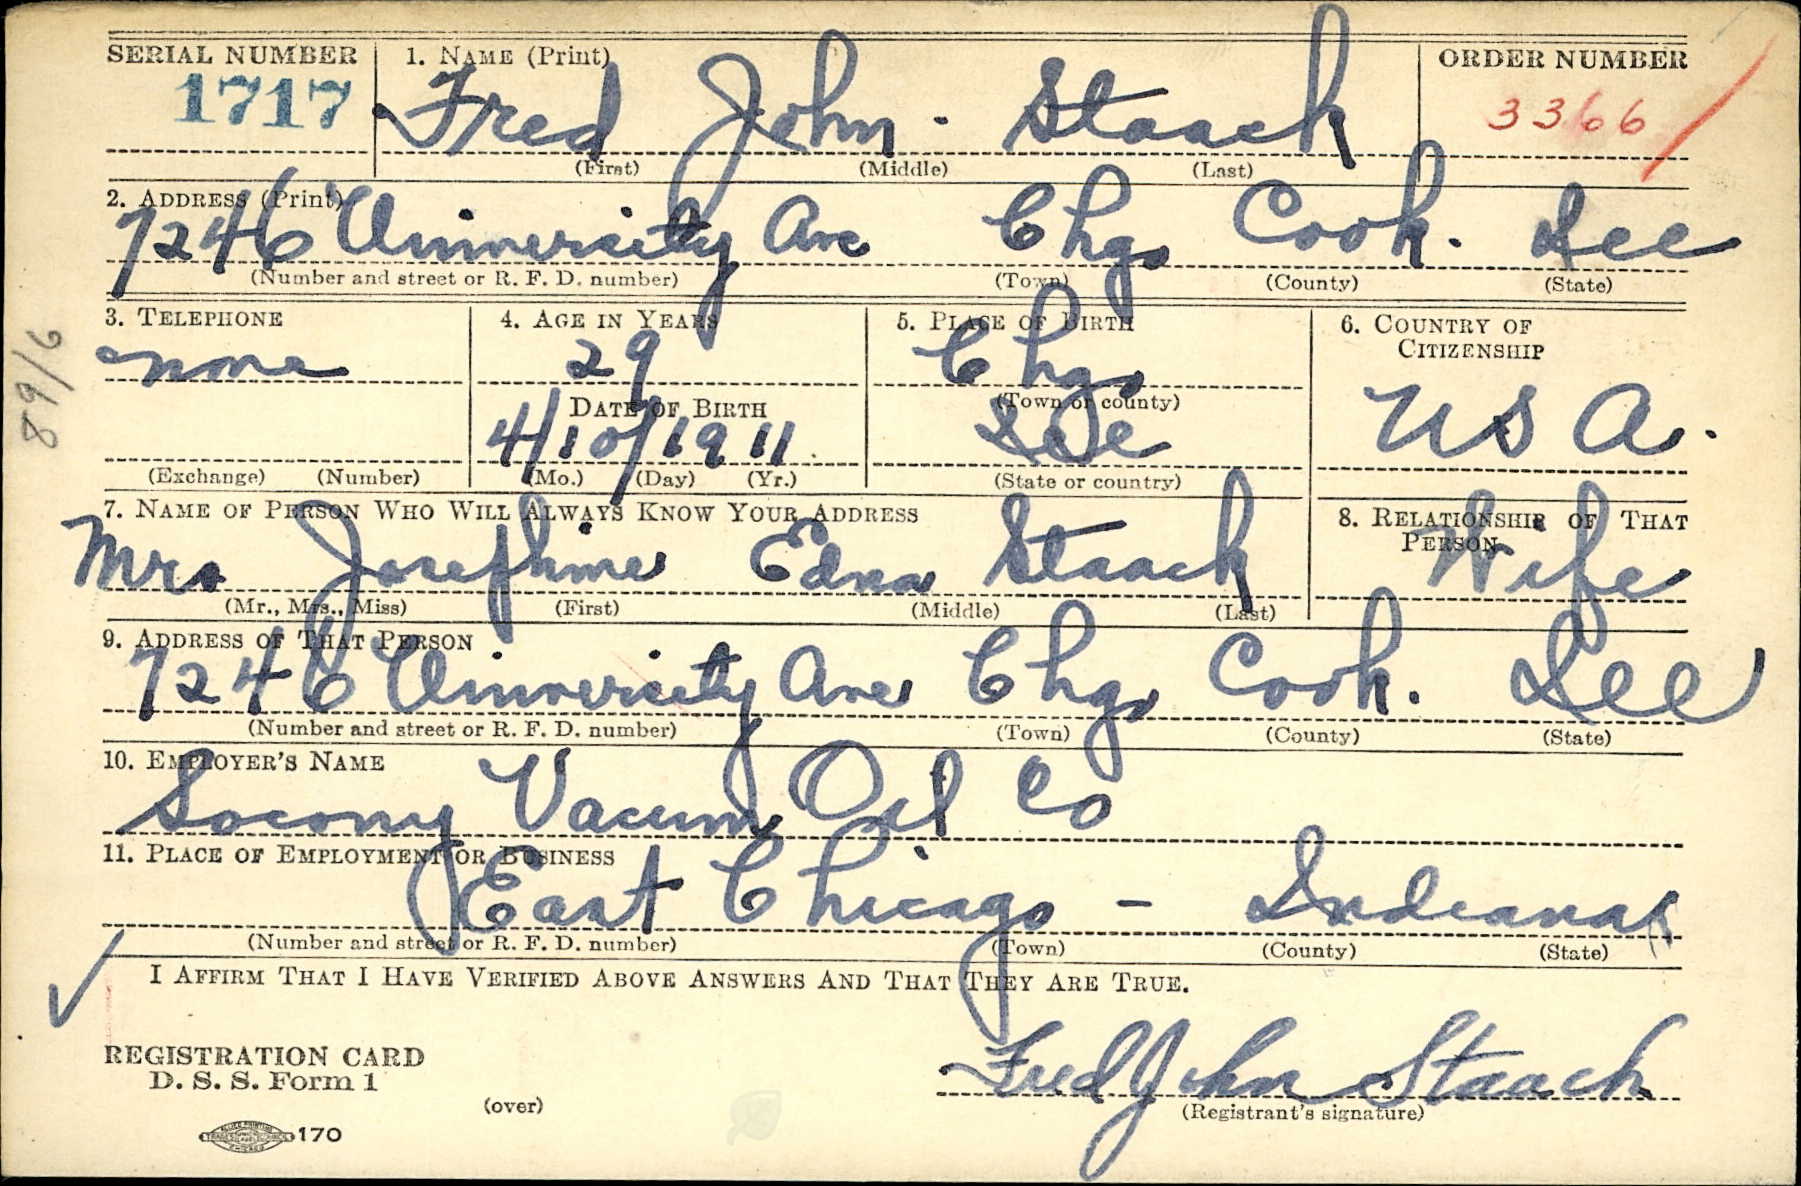 SERIAL NUMBER 1. NAME (Print) ORDER NUMBER
1717 Fred John. Staack 3366
(First) (Middle) (Last)
2. ADDRESS (Print)
7246 University Ave Chgo Cook. Ill
(Number and street or R. F. D. number) (Town) (County) (State)
3. TELEPHONE 4. AGE IN YEARS 5. PLACE OF BIRTH 6. COUNTRY OF
CITIZENSHIP
none 29 Chgo
DATE OF BIRTH (Town or county)
4/10/1911 Ill U S A.
(Exchange) (Number) (Mo.) (Day) (Yr.) (State or country)
7. NAME OF PERSON WHO WILL ALWAYS KNOW YOUR ADDRESS 8. RELATIONSHIP OF THAT
PERSON
Mrs Josephine Edna Staack Wife
(Mr., Mrs., Miss) (First) (Middle) (Last)
9. ADDRESS OF THAT PERSON
7246 University Ave Chgo Cook. Ill
(Number and street or R. F. D. number) (Town) (County) (State)
10. EMPLOYER'S NAME
Socony Vacum Oil Co
11. PLACE OF EMPLOYMENT OR BUSINESS
East Chicago - Indiana
(Number and street or R. F. D. number) (Town) (County) (State)
I AFFIRM THAT I HAVE VERIFIED ABOVE ANSWERS AND THAT THEY ARE TRUE.
REGISTRATION CARD
D. S. S. Form 1
Fred John Staack
(over) (Registrant's signature)
170
89/6